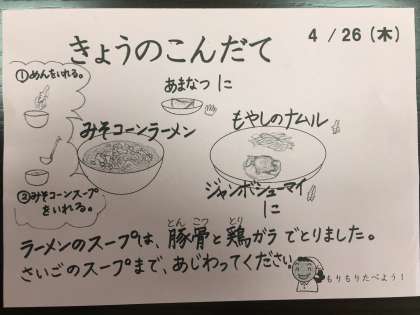 4 / 26 (木)
きょうのこんだて
①めんをいれる。
あまなつ に
みそコーンラーメン
もやしのナムル
②みそコーンスープ
をいれる。
ジャンボシューマイ
に
ラーメンのスープは、豚骨と鶏ガラでとりました。
とん こつ とり
さいごのスープまで、あじわってください。
もりもりたべよう!